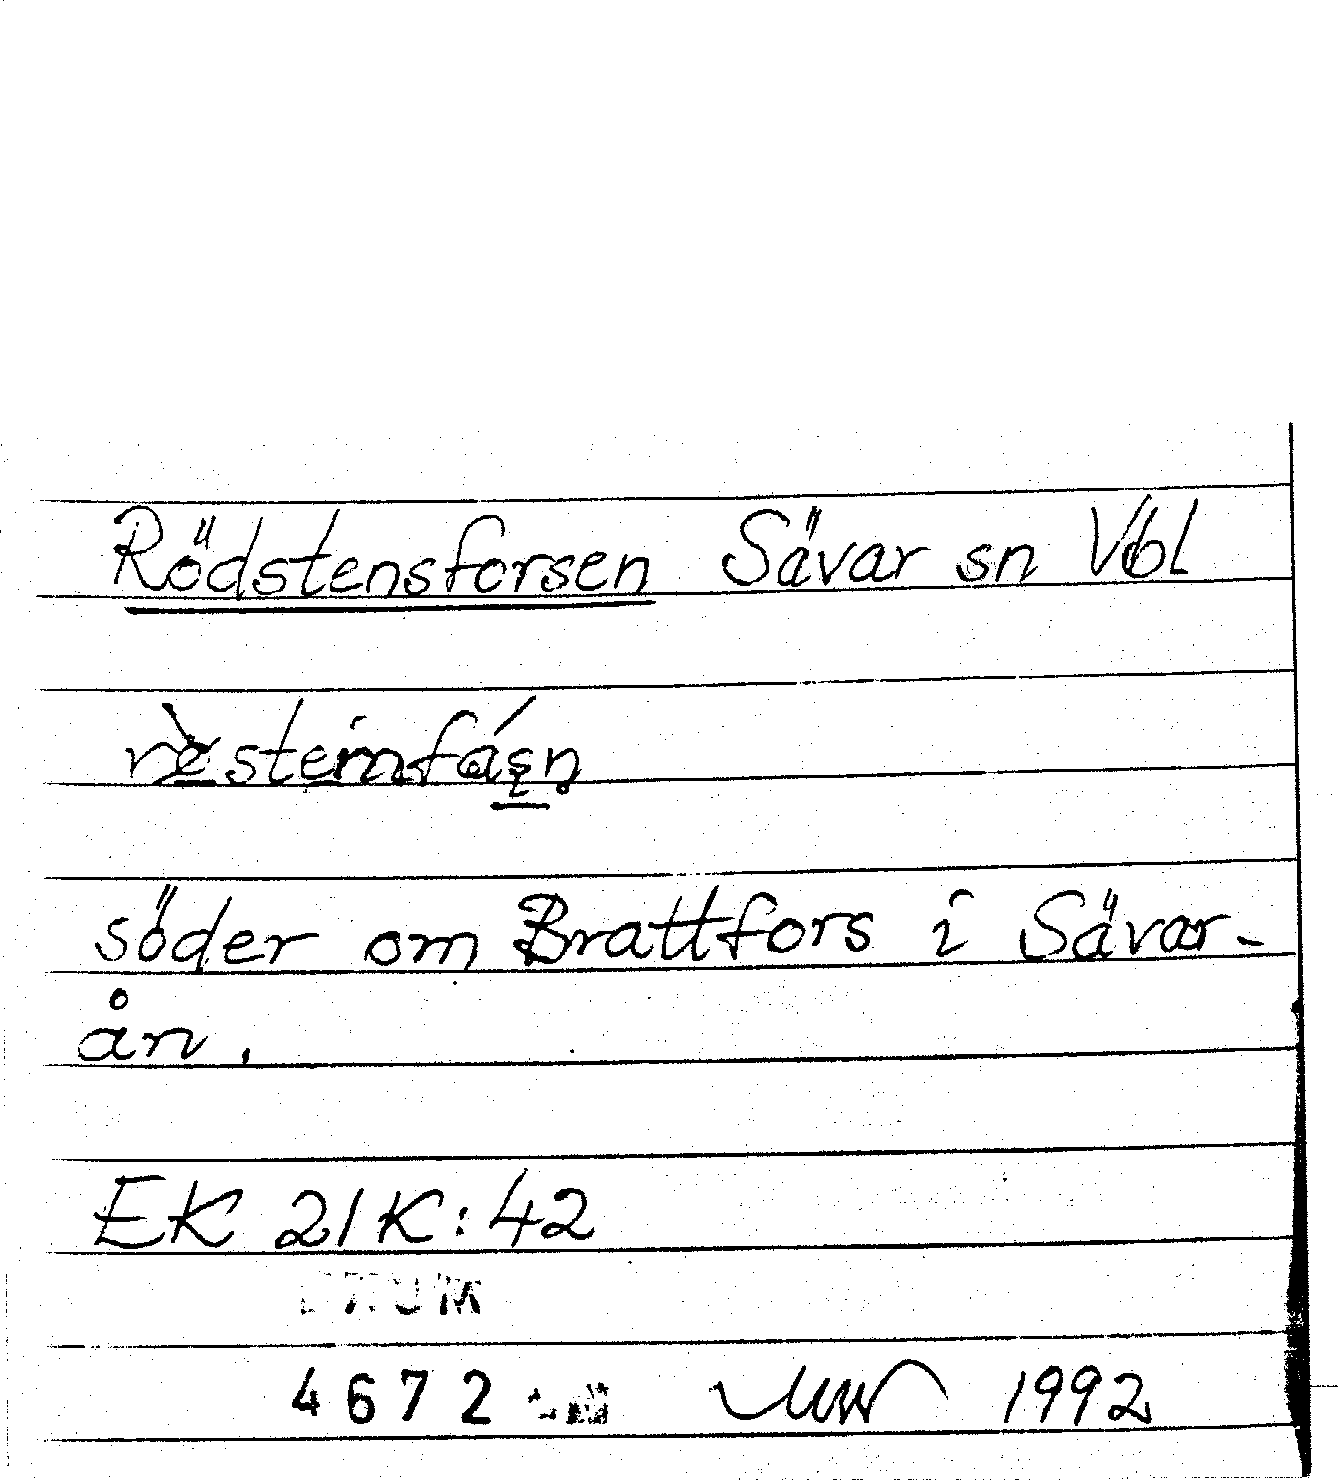 Rödstensforsen Sävar sn Vbl
söder om Brattfors i Sävar-
ån.
EK 21K:42
4672 1992